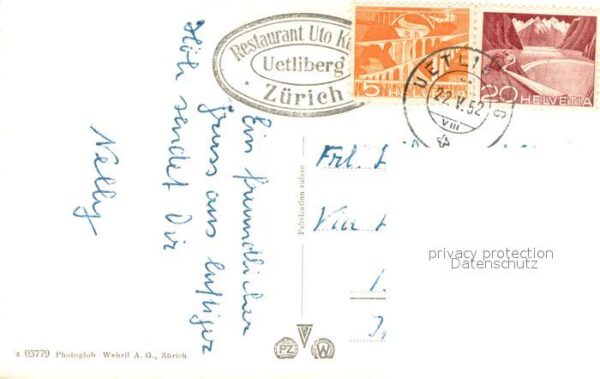 Restaurant Uto
Uetliberg
Zürich
5 HELVETIA
20 HELVETIA
UETLIBERG
22.V.52
VIII
Ein freundlicher
Gruss aus luftiger
Höh sendet Dir
Nelly
Frl.
Via
Fabrication suisse
PZ W
privacy protection
Datenschutz
Z 03779 Photoglob-Wehrli A. G., Zürich